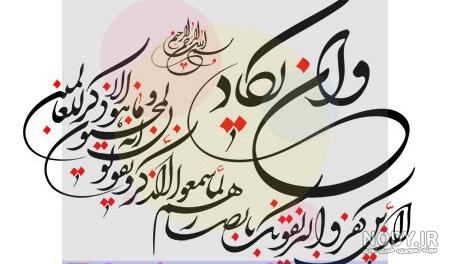 بسم الله الرحمن الرحیم
وان یکاد
الذین کفروا لیزلقونک بابصارهم
لما سمعوا الذکر و یقولون
انه لمجنون
و ما هو الا ذکر للعالمین
NODY.IR